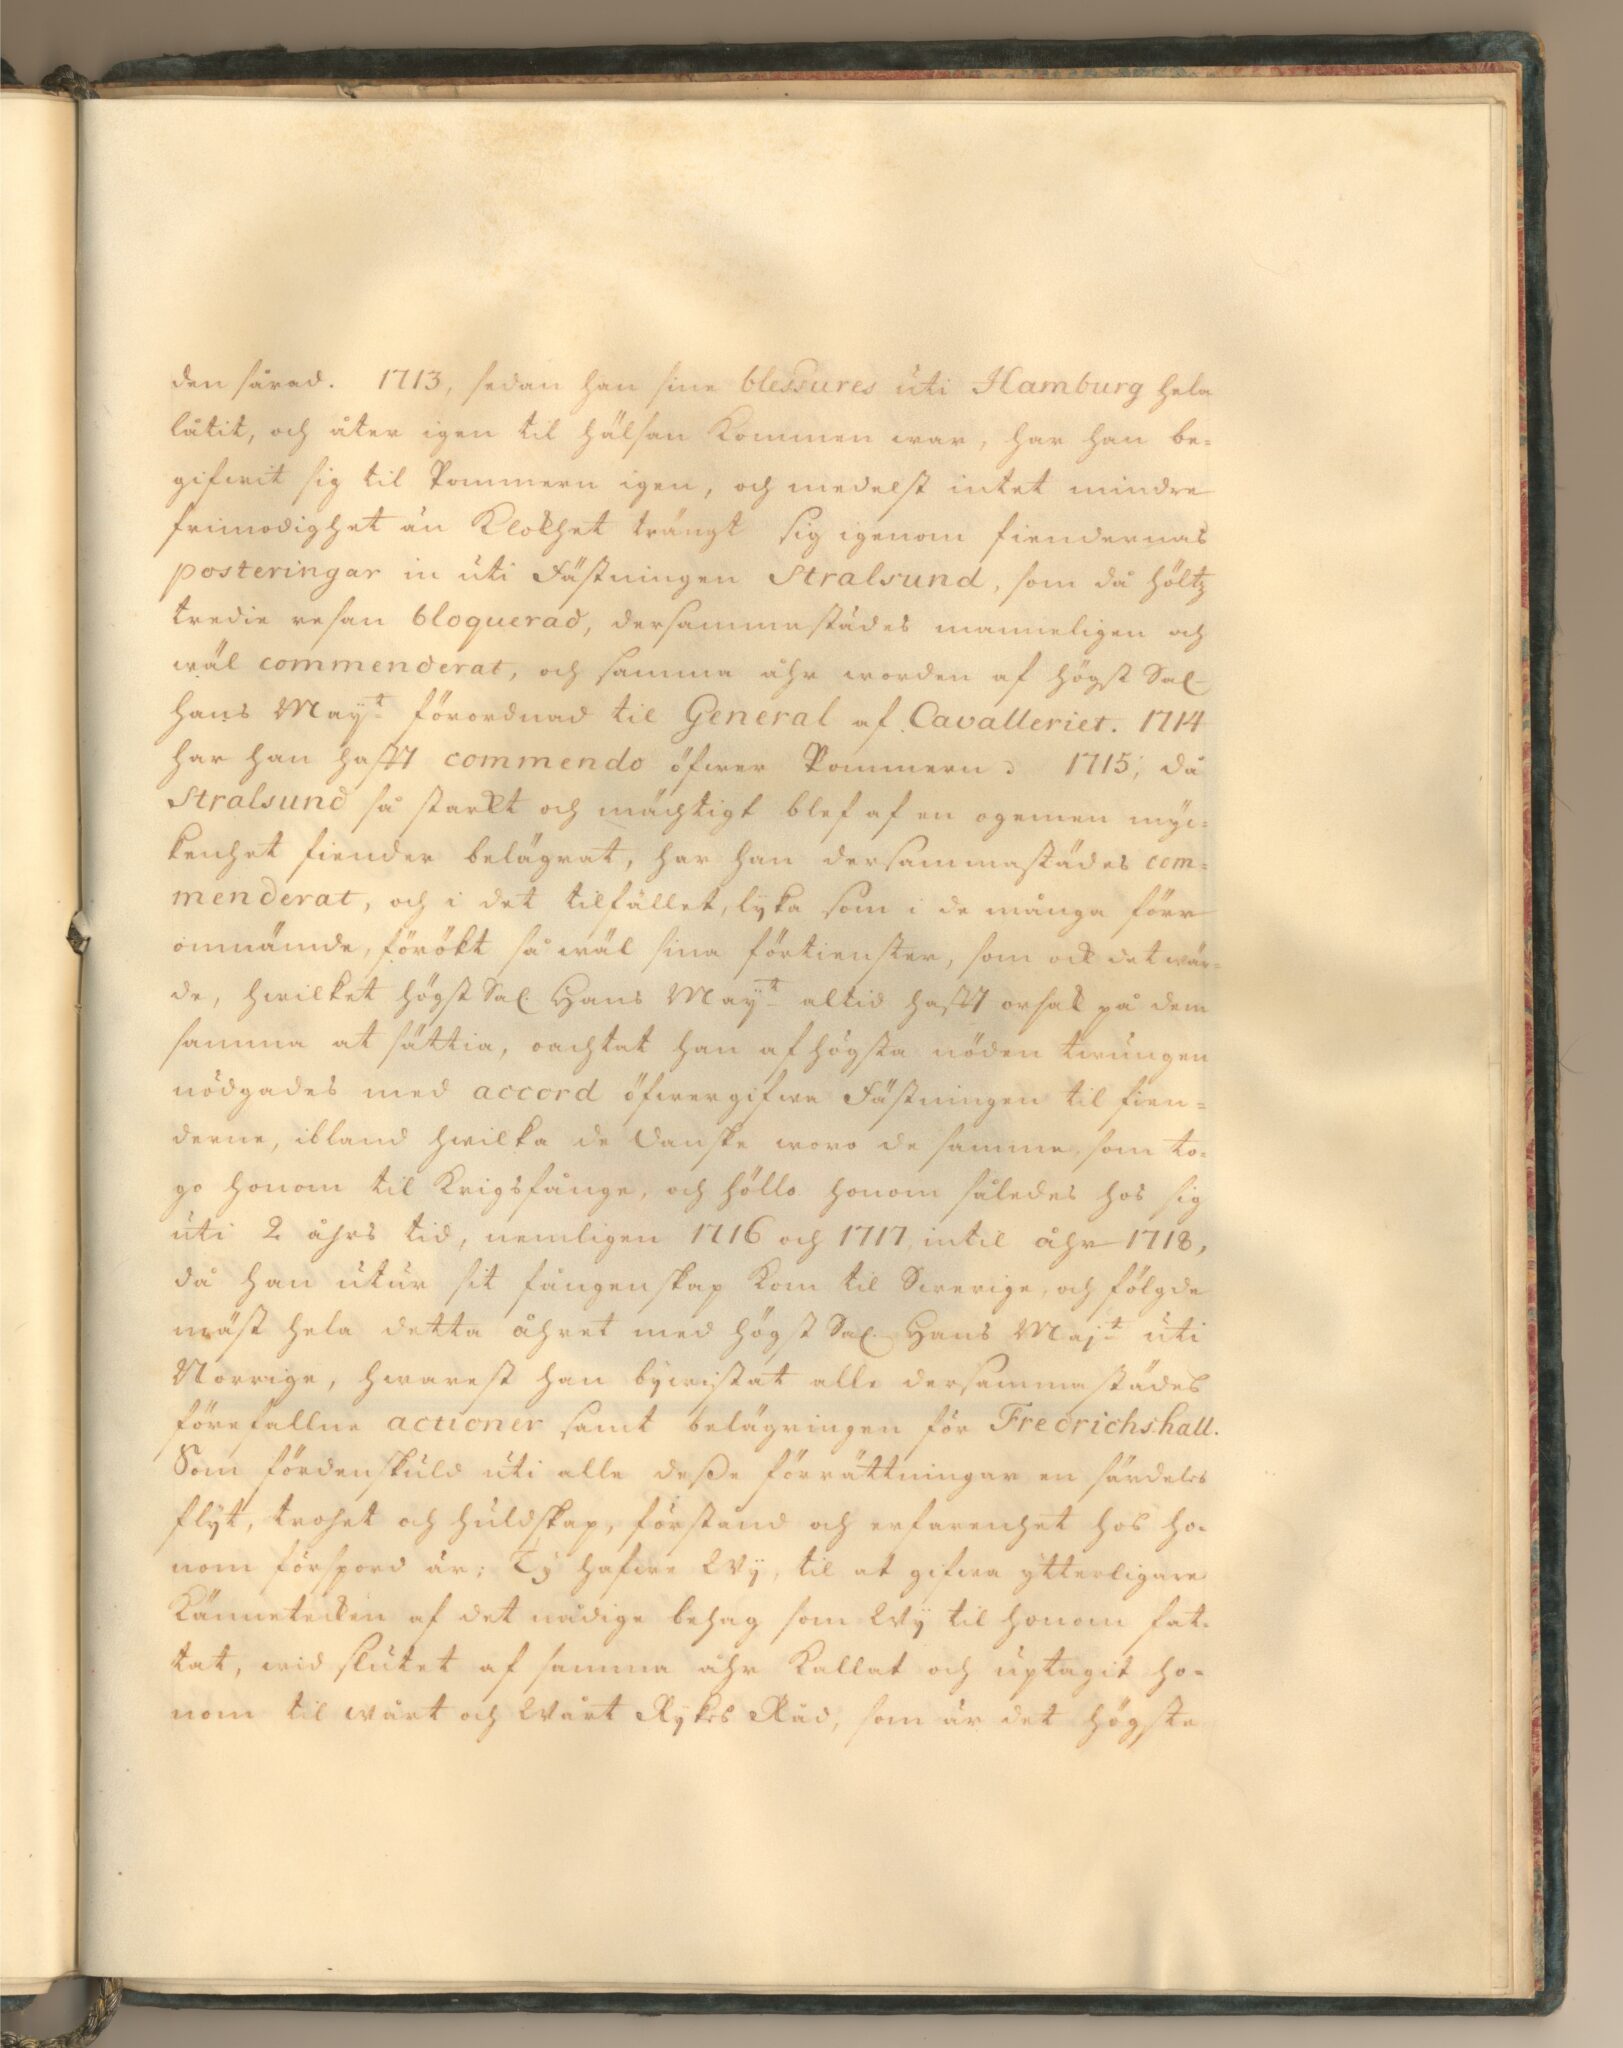 den sårad. 1713, sedan han sine blessures uti Hamburg hela
låtit, och åter igen til hälsan kommen war, har han be-
gifwit sig til Pommern igen, och medelst intet mindre
frimodighet än Klokhet trängt sig igenom fiendernas
posteringar in uti Fästningen Stralsund, som då höltz
tredie resan bloquerad, dersammastädes manneligen och
wäl commenderat, och samma åhr worden af högst Sal
hans Mayt förordnad til General af Cavalleriet. 1714
har han hafft commendo öfwer Pommern. 1715, då
Stralsund så starkt och mächtigt blef af en ogemen myc-
kenhet fiender belägrat, har han dersammastädes com-
menderat, och i det tilfället, lyka som i de många förr
omnämde, förökt så wäl sina förtienster, som ock det wär-
de, hwilket högst Sal. Hans Mayt altid hafft orsak på dem
samma at sättia, oachtat han af högsta nöden twungen
nödgades med accord öfwergifwa Fästningen til fien-
derne, ibland hwilka de Danske woro de samme, som to-
go honom til Krigsfånge, och höllo honom således hos sig
uti 2 åhrs tid, nemligen 1716 och 1717 intil åhr 1718,
då han utur sit fångenskap kom til Swerige, och fölgde
mäst hela detta åhret med högst Sal. Hans Majt uti
Norrige, hwarest han bywistat alle dersammastädes
förefallne actioner samt belägringen för Fredrichshall.
Som fördenskuld uti alle deße förrättningar en särdeles
flyt, trohet och huldskap, förstånd och erfarenhet hos ho-
nom förspord är; Ty hafwe Wij, til at gifwa ytterligare
Känneteckn af det nådige behag som Wij til honom fat-
tat, wid slutet af samma åhr Kallat och uptagit ho-
nom til wårt och Wårt Rykes Råd, som är det högste